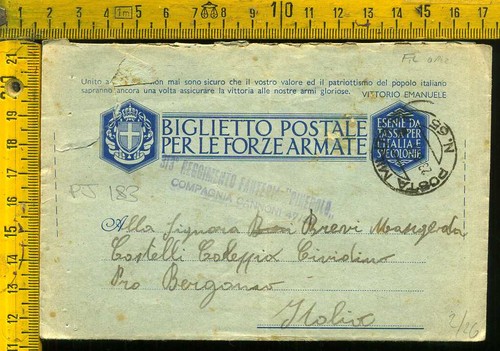 FIL
Unito a non mai sono sicuro che il vostro valore ed il patriottismo del popolo italiano
sapranno ancora una volta assicurare la vittoria alle nostre armi gloriose. VITTORIO EMANUELE
BIGLIETTO POSTALE
PER LE FORZE ARMATE
ESENTE DA
TASSA PER
L'ITALIA E
LE COLONIE
POSTA M
N.65
313° REGGIMENTO FANTERIA "PINEROLO"
COMPAGNIA CANNONI
PJ 183
Alla Signora Brevi Margerda
Castelli Caleppio Cividino
Pro Bergamo
Italia
2/26